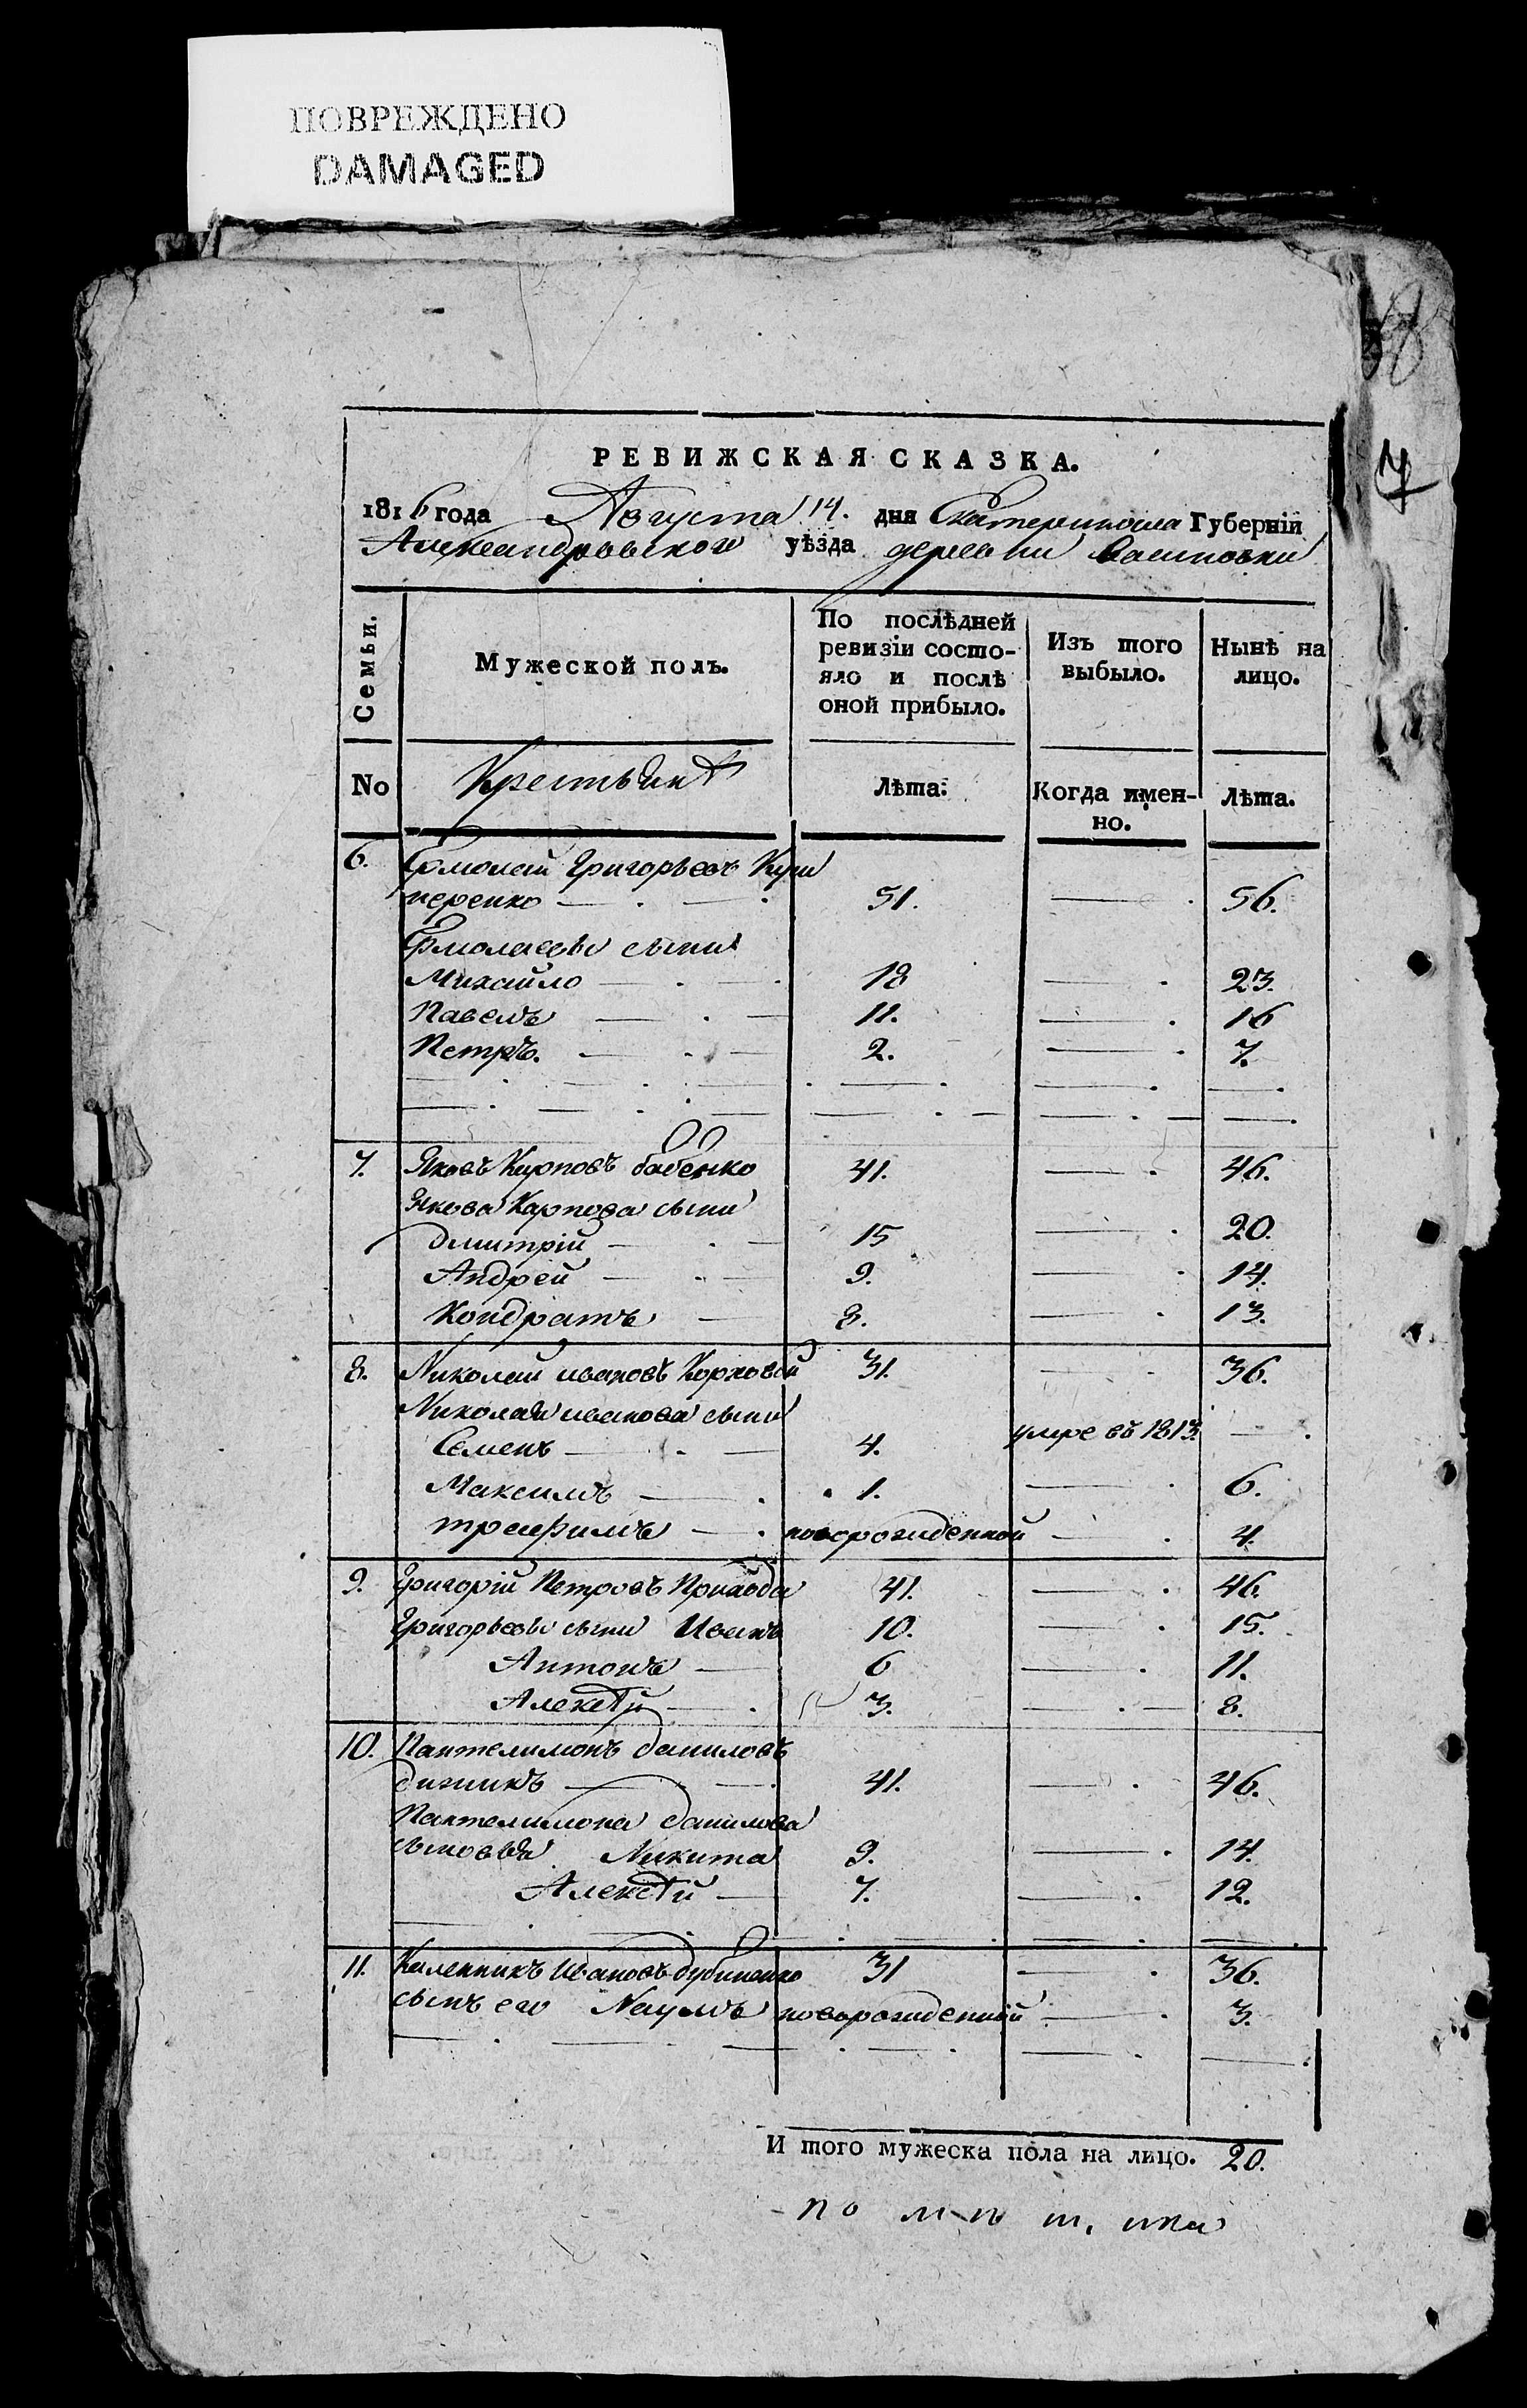 ПОВРЕЖДЕНО
DAMAGED
7
РЕВИЖСКАЯ СКАЗКА.
1816 года Августа 14. дня Екатеринослав Губернїи
Александровского уѣзда деревни
Семьи.
Мужеской полъ.
По послѣдней ревизїи состояло и послѣ оной прибыло.
Изъ того выбыло.
Нынѣ на лицо.
No
Крестьянѣ
Лѣта.
Когда именно.
Лѣта.
6. Ермолай Григорьевъ Куш
неренко 51. 56.
Ермолаевы сыни
Михайло 18 23.
Павелъ 11. 16
Петръ. 2. 7.
7. Яковъ Карповъ бабенко 41. 46.
Якова Карпова сыни
дмитрїй 15 20.
Андрей 9. 14.
Кондратъ 8. 13.
8. Николай ивановъ Корховой 31. 36.
Николая иванова сыни
Семенъ 4. умре въ 1813.
Максимъ 1. 6.
трофимъ новорожденной 4.
9. Григорїй Петровъ Прихода 41. 46.
Григорьевы сыни Иванъ 10. 15.
Антонъ 6 11.
Алексѣй 3. 8.
10. Пантелимонъ даниловъ
41. 46.
Пантелимона данилова
сыновья Никита 9. 14.
Алексѣй 7. 12.
11. Каленникъ Ивановъ дубиненко 31 36.
сынъ его Наумъ новорожденный 3.
И того мужеска пола на лицо. 20.